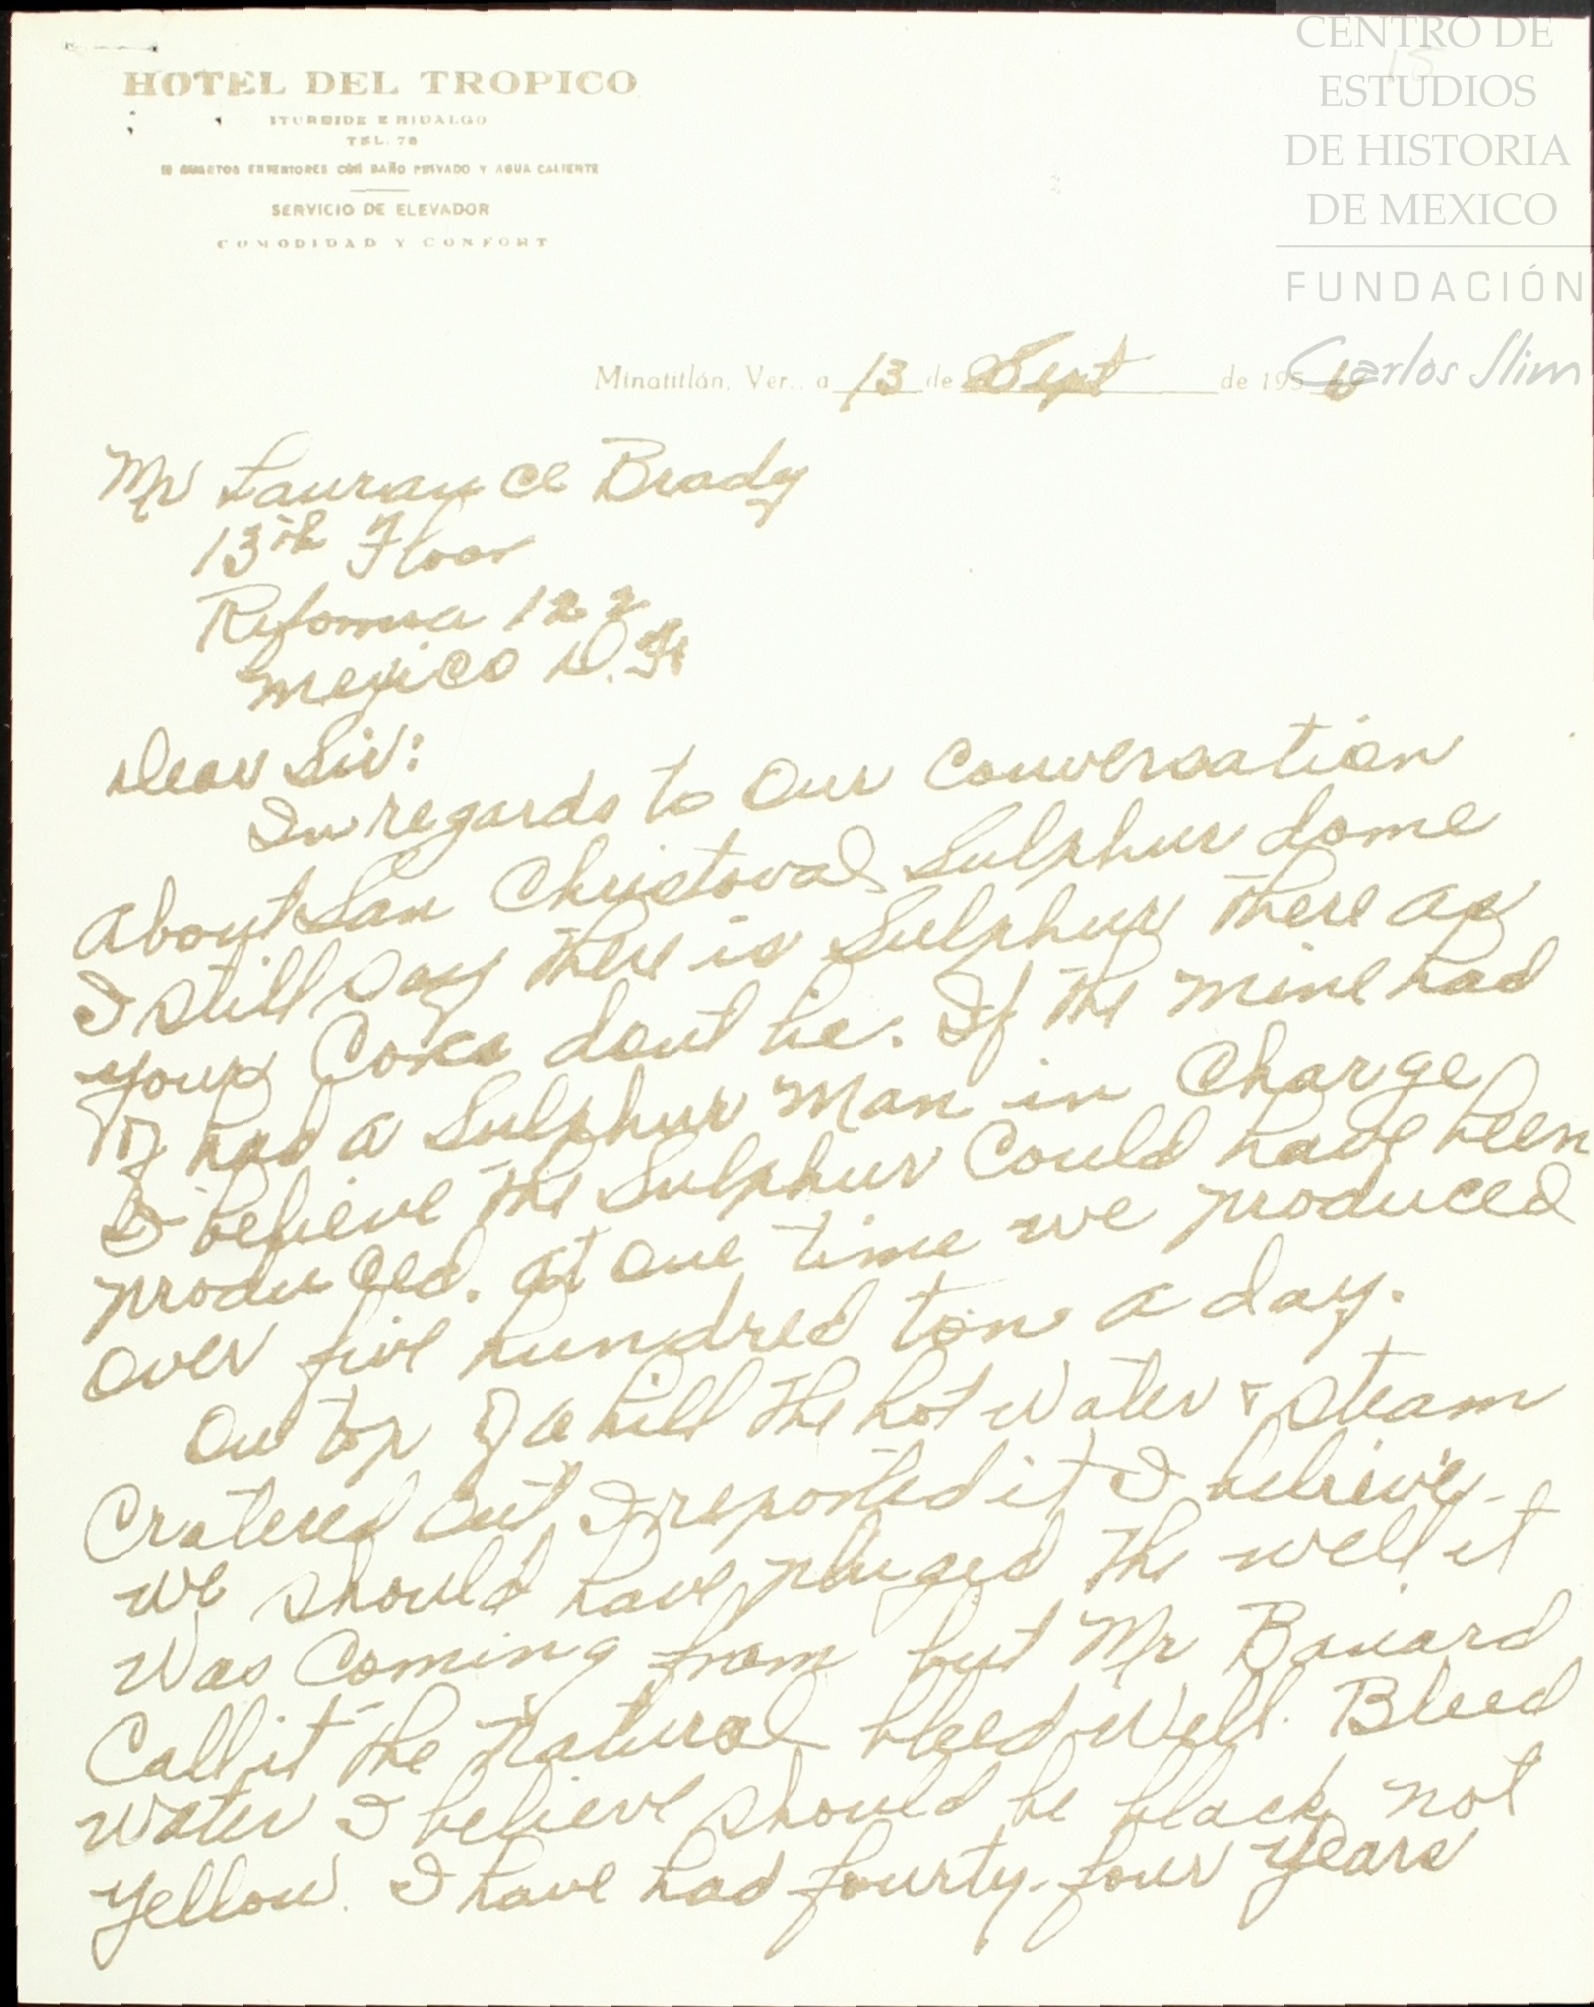 CENTRO DE
ESTUDIOS
DE HISTORIA
DE MEXICO
FUNDACIÓN
Carlos Slim
15
HOTEL DEL TROPICO
ITURBIDE E HIDALGO
TEL. 78
CON BAÑO PRIVADO Y AGUA CALIENTE
SERVICIO DE ELEVADOR
COMODIDAD Y CONFORT
Minatitlán, Ver., a 13 de Sept de 1956
Mr Laurance Brady
13th Floor
Reforma 122
Mexico D.F.
Dear Sir:
In regards to our conversation
about San Christoval Sulphur dome
I still say there is Sulphur there as
your Cores dont lie. If the mine had
had a Sulphur Man in Charge
I believe the Sulphur Could have been
produced. at one time we produced
over five hundred tons a day.
On top of a hill the hot water & steam
Cratered out I reported it I believe
we should have pluged the well it
was coming from but Mr
Call it the natural bleed well. Bleed
water I believe should be black not
yellow. I have had fourty-four years